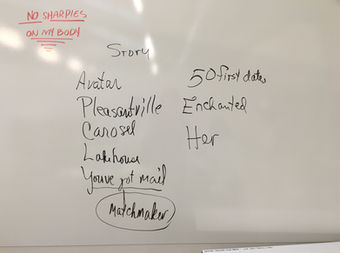 NO SHARPIES
ON MY BODY
Story
Avatar
Pleasantville
Carosel
Lakehouse
Youve got mail
Matchmaker
50 first dates
Enchanted
Her